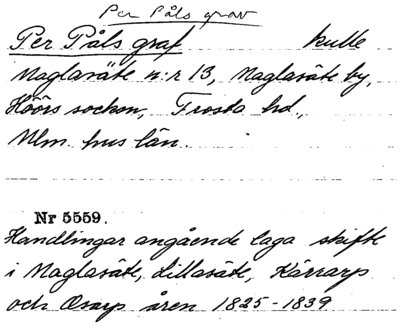 Per Påls grav
Per Påls graf kulle
Maglasäte n:r 13, Maglasäte by,
Höörs socken, Frosta hd.,
Mlm. hus län.
Nr 5559.
Handlingar angående laga skifte
i Maglasäte, Lillasäte, Kärrarp
och Orarp åren 1825-1839